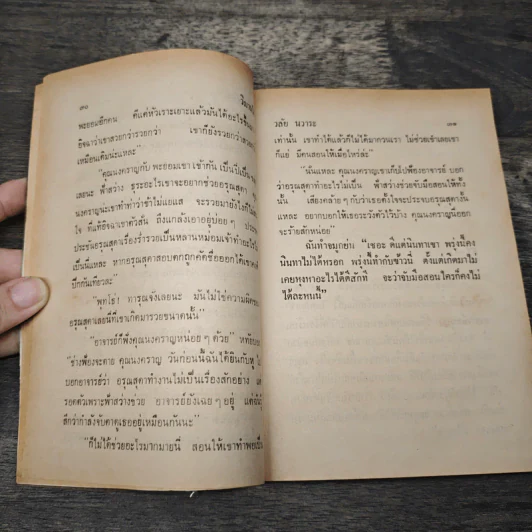 ๓๘
พะยอมอีกคน ดีแต่หัวเราะเยาะแล้วมันได้อะไรขึ้น
ยิจฉาว่าเขาสวยกว่ารวยกว่า เขาก็ยังรวยกว่าสวย
เหมือนเดิมน่ะแหละ"
"คุณนงคราญกับ พะยอมเขา เข้ากัน เป็นปี่เป็น
เลยนะ ฟ้าสว่าง ธุระอะไรเขาจะอยากช่วยอรุณสุดา
คุณนงคราญน่ะเขาทำท่าว่าข้าไม่แยแส จะรวยมายังไงก็ไม่
ใจ ที่แท้ยิจฉาเขาตัวสั่น ถึงแกล้งเอาอยู่บ่อยๆ
ประชันอรุณสุดาเรื่องร่ำรวยเป็นหลานหม่อมเจ้าทำอะไร
เป็นนี่แหละ หากอรุณสุดาสอบตกถูกคัดชื่อออกได้เขา
ปีกกันเทียวล่ะ"
"พุทโธ่! ทารุณจังเลยนะ มันไม่ใช่ความผิดของ
อรุณสุดาเลยนี่ที่เขาเกิดมารวยขนาดนั้น"
"อาจารย์ก็พึ่งคุณนงคราญหน่อยๆ ด้วย"
"ช่างฟ้องจะตาย คุณนงคราญ วันก่อนนี้ฉันได้ยินกับหู
บอกอาจารย์ว่า อรุณสุดาทำงานไม่เป็นเรื่องสักอย่าง
รอดตัวเพราะฟ้าสว่างช่วย อาจารย์ยังเฉยๆ อยู่
สึกว่ากำลังจับตาดูเธออยู่เหมือนกันนะ"
"ก็ไม่ได้ช่วยอะไรมากมายนี่ สอนให้เขาทำพอเป็น
วลัย นวาระ
๓๙
เท่านั้น เขาทำได้แล้วก็ไม่ได้มากวนเรา ไม่ช่วยเข้าเลยเขา
ก็แย่ มีคนสอนให้เมื่อไหร่ล่ะ"
"นั่นแหละ คุณนงคราญเขาถึงไปฟ้องอาจารย์ บอก
ว่าอรุณสุดาทำอะไรไม่เป็น ฟ้าสว่างช่วยจับมือสอนให้ทั้ง
นั้น เสียงคล้ายๆ กับว่าเธอตั้งใจจะประจบอรุณสุดางั้น
แหละ อยากบอกให้เธอระวังตัวไว้บ้าง คุณนงคราญน้อย
จะร้ายสักหน่อย"
ฉันทำจมูกย่น "เชอะ ดีแต่นินทาเขา พรุ่งนี้คง
นินทาไม่ได้หรอก พรุ่งนี้ทำกับข้าวนี่ ตั้งแต่เกิดมาไม่
เคยหุงหาอะไรได้ดีสักที จะว่าจับมือสอนใครก็คงไม่
ได้ละหนนี้"